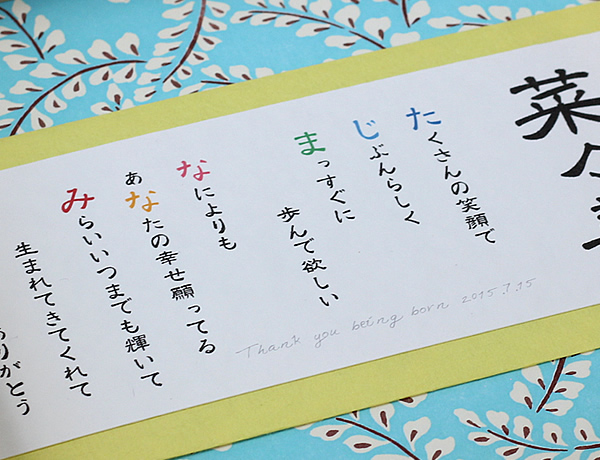 たくさんの笑顔で
じぶんらしく
まっすぐに
歩んで欲しい
なによりも
あなたの幸せ願ってる
みらいいつまでも輝いて
生まれてきてくれて
ありがとう
Thank you being born 2015.7.15